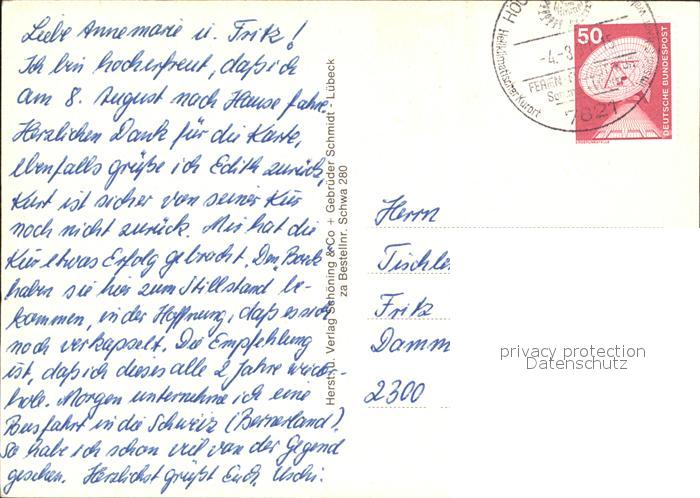 Liebe Annemarie u. Fritz!
Ich bin hocherfreut, daß ich
am 8. August nach Hause fahre.
Herzlichen Dank für die Karte,
ebenfalls grüße ich Edith zurück,
Kurt ist sicher von seiner Kur
noch nicht zurück. Mir hat die
Kur etwas Erfolg gebracht. Den
haben sie hier zum Stillstand be-
kommen, in der Hoffnung, daß es sich
noch verkapselt. Die Empfehlung
ist, daß ich dieses alle 2 Jahre wieder-
hole. Morgen unternehme ich eine
Busfahrt in die Schweiz (Bernerland).
So habe ich schon viel von der Gegend
gesehen. Herzlichst grüßt Euch, Uschi.
Herst. u. Verlag Schöning & Co + Gebrüder Schmidt · Lübeck
za Bestellnr. Schwa 280
HÖC
-4.-3
15
FERIEN
Heilklimatischer Kurort
7821
50
DEUTSCHE BUNDESPOST
Herrn
Tischle
Fritz
Damm
2300
privacy protection
Datenschutz